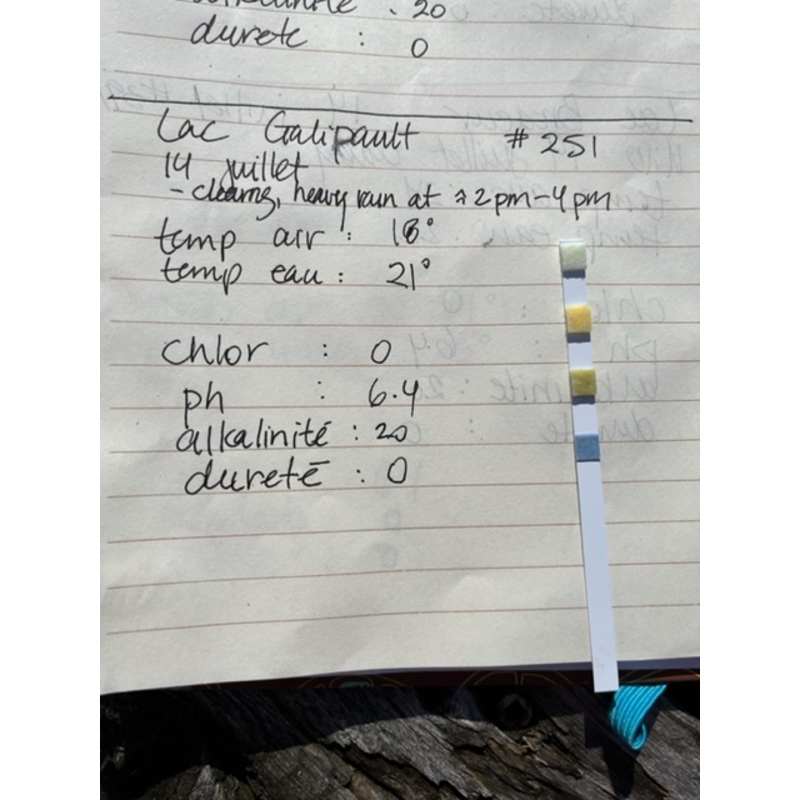 : 20
dureté : 0
Lac Galipault # 251
14 juillet
- clearing, heavy rain at ≈ 2 pm - 4 pm
temp air : 18°
temp eau : 21°
chlor : 0
ph : 6.4
alkalinité : 20
dureté : 0